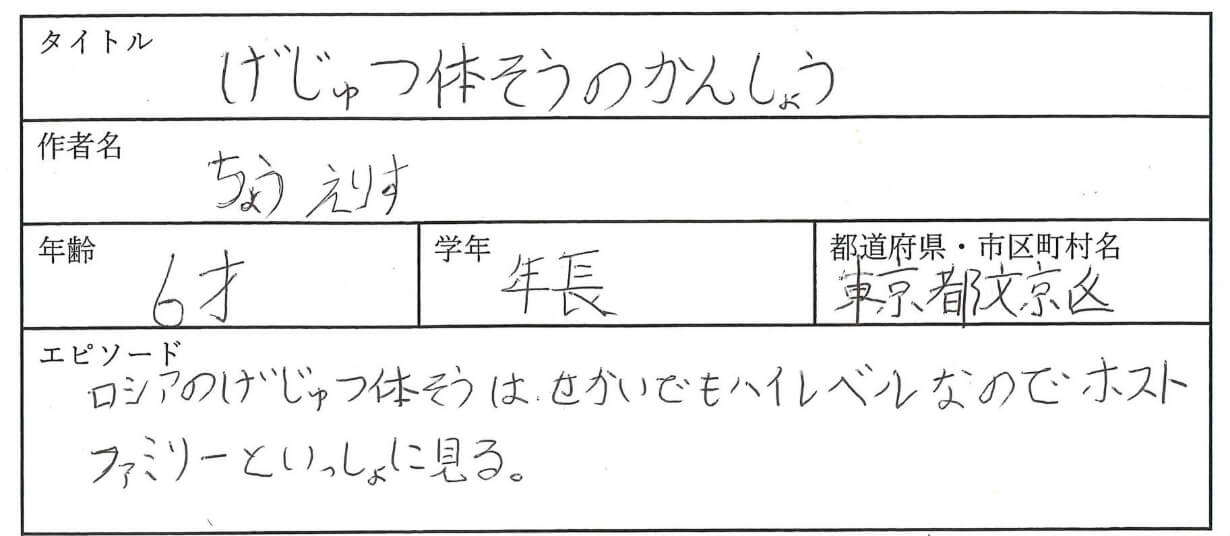 タイトル
げじゅつ体そうのかんしょう
作者名
ちょう えりす
年齢
6才
学年
年長
都道府県・市区町村名
東京都文京区
エピソード
ロシアのげじゅつ体そうは、せかいでもハイレベルなのでホスト
ファミリーといっしょに見る。